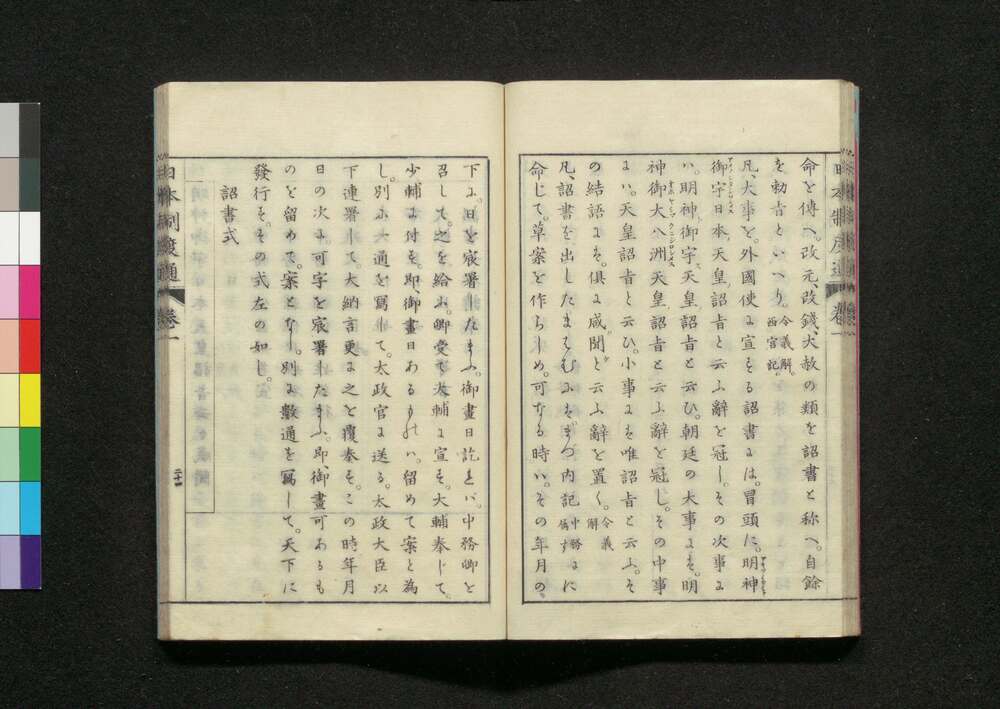 命と傳へ。改元、改錢、大赦の類を詔書と称へ。自餘
を勅旨といへり。令義解。西宮記。
凡、大事を。外國使に宣する詔書には。冒頭に。明神
御宇日本天皇詔旨と云ふ辭を冠し。その次事に
ハ。明神御宇天皇詔旨と云ひ。朝廷の大事にも。明
神御大八洲天皇詔旨と云ふ辭を冠し。その中事
にハ。天皇詔旨と云ひ。小事にも唯詔旨と云ふ。そ
の結語にも。倶に咸聞と云ふ辭を置く。令義解
凡、詔書を出したまはむには。まづ内記中務属すに
命じて。草案を作らしめ。可なる時ハ。その年月の。
下に。日を宸署したまふ。御畫日訖れバ。中務卿を
召して。之を給ふ。卿受て大輔に宣す。大輔奉じて。
少輔に付す。即、御畫日あるものハ。留めて案と為
し。別に一通を寫して。太政官に送る。太政大臣以
下連署して。大納言更に之を覆奏す。この時年月
日の次に。可字を宸署したまふ。即、御畫可あるも
のを留めて。案となし。別に數通を寫して。天下に
發行す。その式左の如し。
詔書式
日本制度通
卷一
二十一